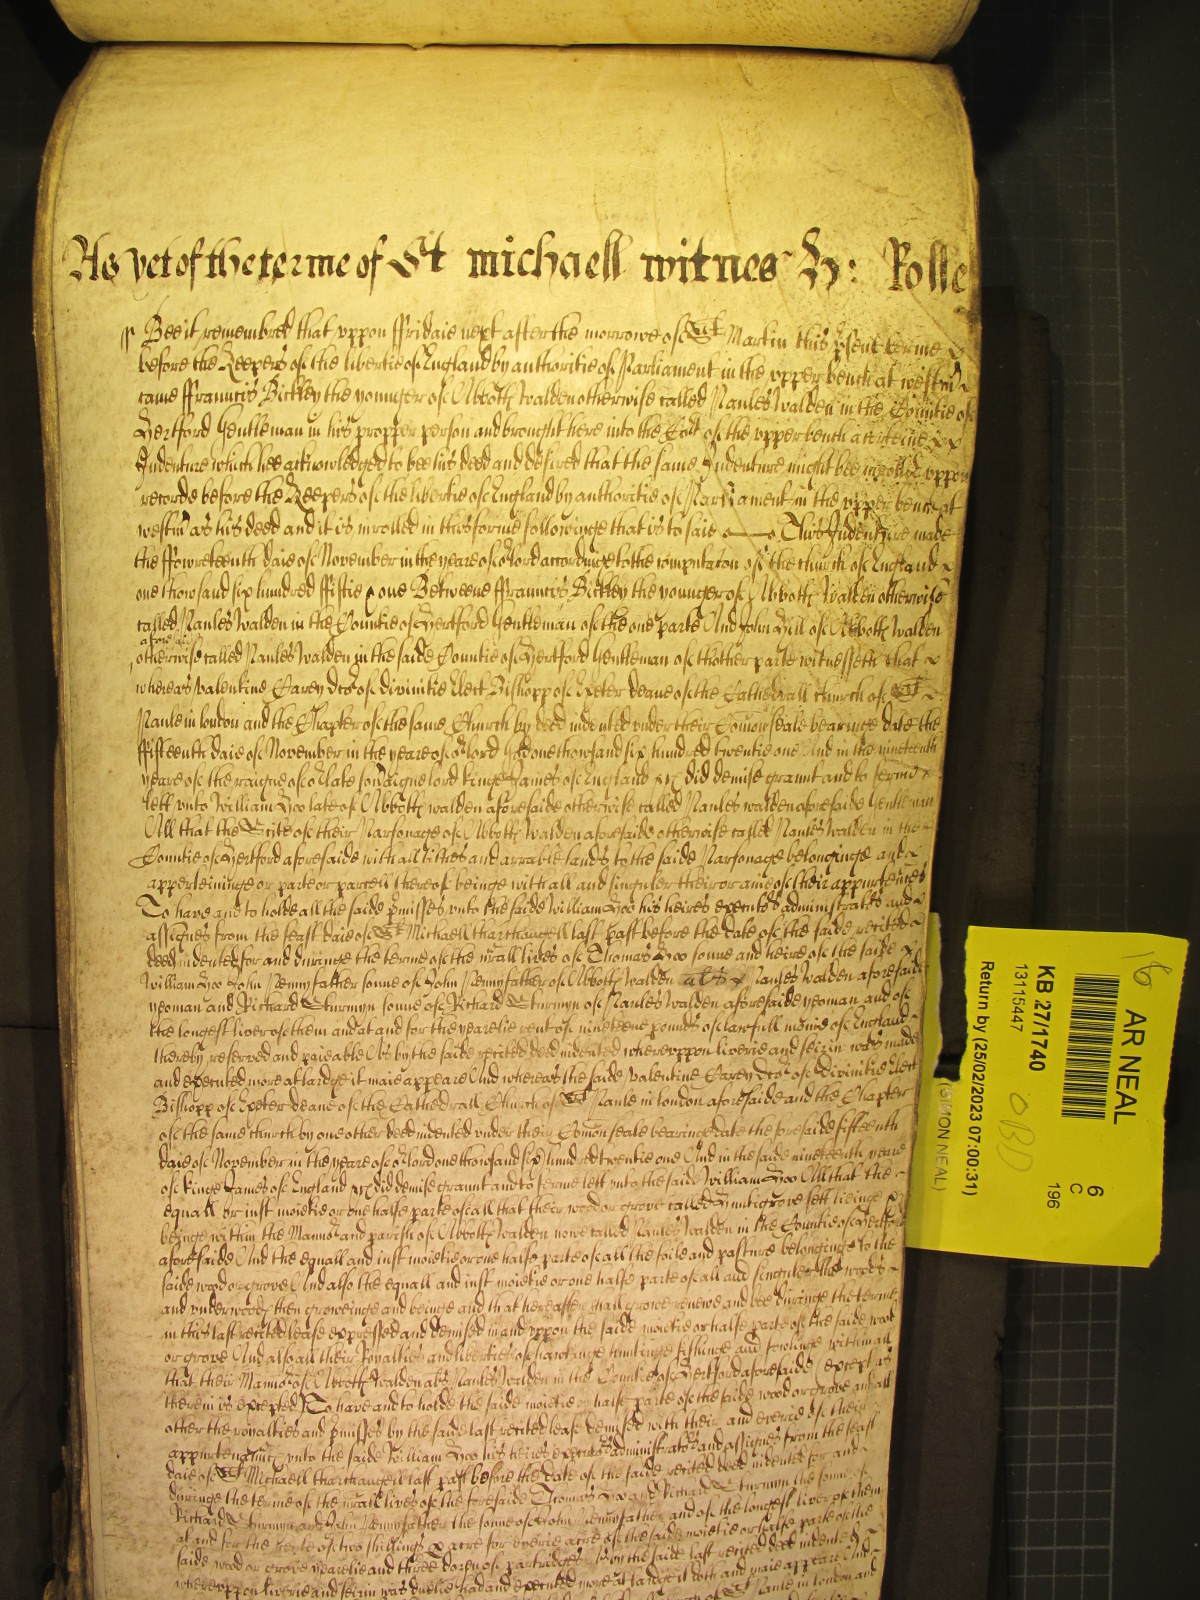 As yet of the terme of St michaell witnes H: Rolle
Bee it remembred that uppon ffridaie next after the morrowe of St Martin this psent terme
before the Keepers of the libertie of England by authoritie of Parliament in the upper bench at westm
came ffrauncis Bickley the younger of Abbotts walden otherwise called Paules walden in the Countie of
Hertford Gentleman in his propper person and brought here into the Cort of the upper bench a certeine
Indenture which hee acknowledged to bee his deed and desired that the same Indenture might bee inrolled uppon
recorde before the Keepers of the libertie of England by authoritie of Parliament in the upper bench at
westm as his deed and it is inrolled in this forme followinge that is to saie This Indenture made
the ffowreteenth daie of November in the yeare of or Lord accordinge to the computacon of the church of England
one thowsand six hundred ffiftie & one Betweene ffrauncis Bickley the younger of Abbotts Walden otherwise
called Paules walden in the Countie of Hertford Gentleman of the one parte And John Hill of Abbotts walden
aforesaid
otherwise called Paules walden in the saide Countie of Hertford Gentleman of thother parte witnesseth that
whereas Valentine Carey Dcor of divinitie Elect Bishopp of Exeter deane of the Cathedrall church of St
Paule in london and the Chapter of the same Church by deed indented under their Comon seale bearinge date the
ffifteenth daie of November in the yeare of or lord God one thowsand six hundred twentie one And in the nineteenth
yeare of the raigne of or late sovaigne lord kinge James of England &c did demise graunt and to ferme
lett unto William Hoo late of Abbotts walden aforesaide otherwise called Paules walden aforesaide Gentleman
All that the Scite of their Parsonage of Abbotts walden aforesaide otherwise called Paules walden in the
Countie of Hertford aforesaide with all tithes and arrable lands to the saide Parsonage belonginge and
apperteininge or parte or parcell thereof beinge with all and singuler their or anie of their appurtennces
To have and to holde all the saide pmisses unto the saide William Hoo his heires executors administrators and
assignes from the feast daie of St Michaell tharchangell last past before the date of the saide recited
deed indented for and duringe the terme of the nrall lives of Thomas Hoo sonne and heire of the saide
William Hoo John Pennyfather sonne of John Pennyfather of Abbotts Walden als Paules Walden aforesaide
yeoman and Richard Thurmyn sonne of Richard Thurmyn of Paules Walden aforesaide yeoman and of
the longest liver of them and at and for the yearelie rent of nineteene pounds of lawfull monie of England
thereby reserved and paieable As by the saide recited deed indented whereuppon liverie and seizin was made
and executed more at lardge it maie appeare And whereas the saide Valentine Carey Dcor of divinitie Elect
Bishopp of Exeter deane of the Cathedrall Church of St Paule in london aforesaide and the Chapter
of the same church by one other deed indented under their Comon seale bearinge date the foresaide fifteenth
daie of November in the yeare of or lord one thowsand six hundred twentie one And in the saide nineteenth yeare
of kinge James of England &c did demise graunt and to ferme lett unto the saide William Hoo All that the
equall or iust moietie or one halfe parte of all that their wood or grove called sett lieinge &
beinge within the Mannor and parish of Abbotts walden nowe called Paules walden in the Countie of Hertford
aforesaide And the equall and iust moietie or one halfe parte of all the soile and pasture belonginge to the
saide wood or grove And also the equall and iust moietie or one halfe parte of all and singuler the woods
and underwoods then groweinge and beinge and that hereafter shall growe renewe and bee duringe the terme
in this last recited lease expressed and demised in and uppon the saide moietie or halfe parte of the saide wood
or grove And also all their Royalties and liberties of hawkinge huntinge fishinge and fowlinge within all
that their Mannor of Abbotts Walden als Paules Walden in the Countie of Hertford aforesaide (except as
therein is excepted) To have and to holde the saide moietie or halfe parte of the saide wood or grove and all
other the royalties and pmisses by the saide last recited lease demised with their and everie of their
appurtenannces unto the saide William Hoo his heires executors administrators and assignes from the feast
daie of St Michaell tharchangell last past before the date of the saide recited deed indented for and
duringe the terme of the nrall lives of the foresaide Thomas Hoo and Richard Thurmyn the sonne of
Richard Thurmyn and John Pennyfather the sonne of John Pennyfather and of the longest liver of them
at and for the rente of two shillings & acre for everie acre of the saide moietie or halfe parte of the
saide wood or grove yearelie and three dozen of partridges As by the saide last recited deed indented
whereuppon liverie and seizin was duelie had and executed more at lardge it doth and maie appeare And
Paule in london and
AR NEAL
6
C
196
KB 27/1740
13115447
Return by (25/02/2023 07:00:31)
(SIMON NEAL)